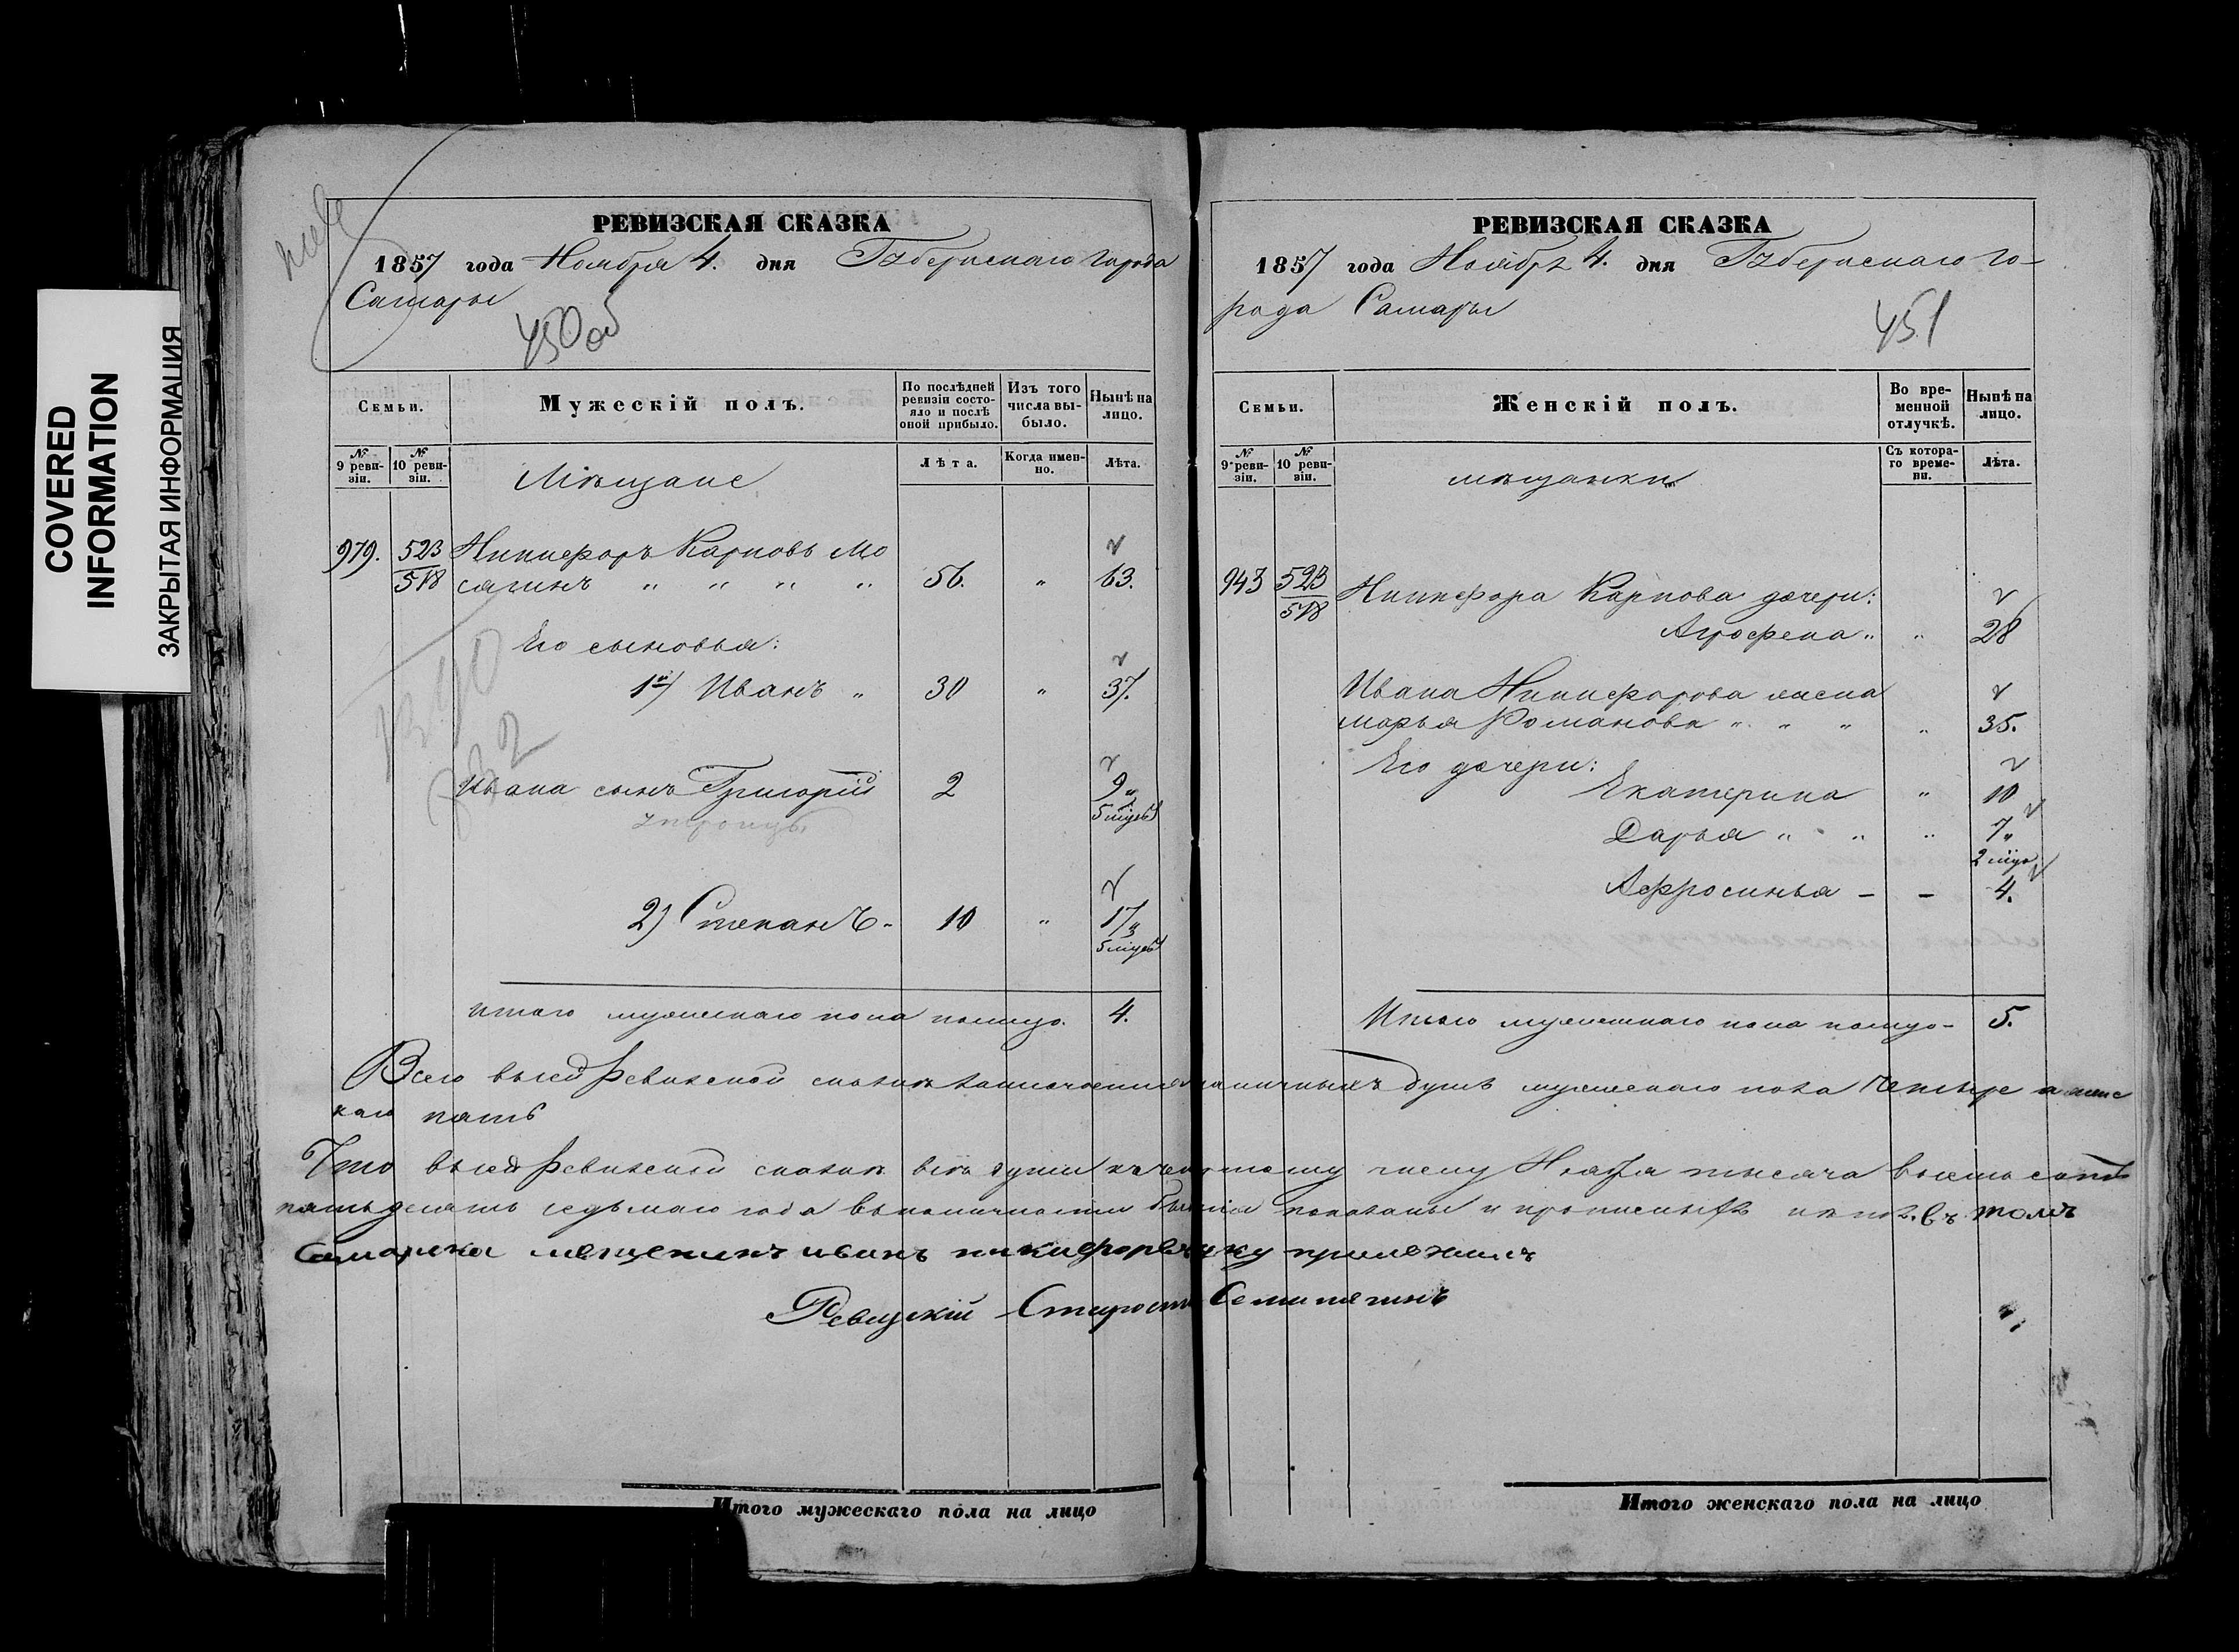 COVERED
INFORMATION
ЗАКРЫТАЯ ИНФОРМАЦИЯ
РЕВИЗСКАЯ СКАЗКА
1857 года Ноября 4. дня Губернскаго города
Самары
450 об
Семьи.
Мужескій полъ.
По послѣдней ревизіи состояло и послѣ оной прибыло.
Изъ того числа выбыло.
Нынѣ на лицо.
№ 9 ревизіи.
№ 10 ревизіи.
Мѣщане
Лѣта.
Когда именно.
Лѣта.
979. 523 Никифоръ Карповъ Мо
518 сягинъ " " " " 56. " 63.
Его сыновья:
1й) Иванъ " 30 " 37.
Ивана сынъ Григорій 2 9 "
5 мцовъ
2) Степанъ - 10 " 17 "
5 мцовъ
Итого мужескаго пола налицо. 4.
РЕВИЗСКАЯ СКАЗКА
1857 года Ноября 4. дня Губернскаго го-
рода Самары
451
Семьи.
Женскій полъ.
Во временной отлучкѣ.
Нынѣ на лицо.
№ 9 ревизіи.
№ 10 ревизіи.
мѣщанки
Съ котораго времени.
Лѣта.
943 523 Никифора Карпова дочери:
518
Агрофена " " 28
Ивана Никифорова жена
Марья Романова " " " " 35.
Его дочери:
Екатерина " 10
Дарья " " " 7 "
2 мцо
Аффросинья - - 4.
Итого мужескаго пола налицо - 5.
Всего въ сей Ревизской сказкѣ наличныхъ душъ мужескаго пола четыре а женс
каго пять
Что въ сей Ревизской сказкѣ всѣ души къ четвертому числу Ноября тысяча восемь сотъ
пятьдесятъ седьмаго года въ наличности показаны и прописныхъ нѣтъ. въ томъ
Самарска мещенинъ иванъ никифоровъ руку приложилъ
Ревизскій Староста Семипягинъ
Итого мужескаго пола на лицо
Итого женскаго пола на лицо